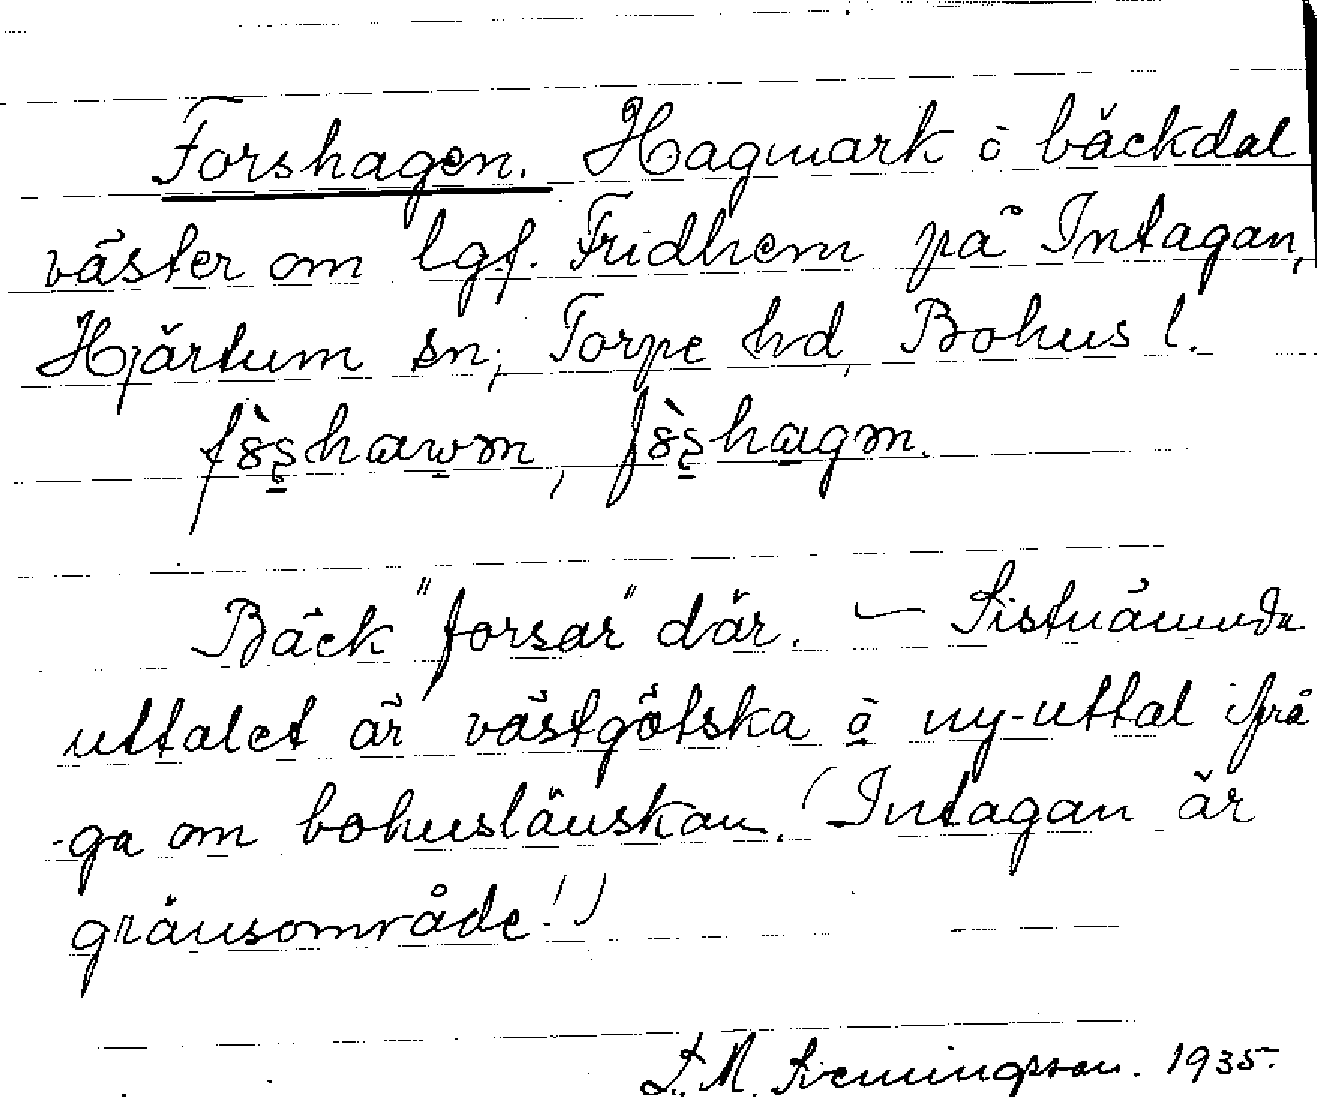 Forshagen. Hagmark ò bäckdal
väster om lgf. Fridhem på Intagan,
Hjärtum sn, Torpe hd, Bohus l.
Bäck "forsar" där. — Sistnämnda
uttalet är västgötska ò ny-uttal ifrå
ga om bohuslänskan. (Intagan är
gränsområde!)
1935.